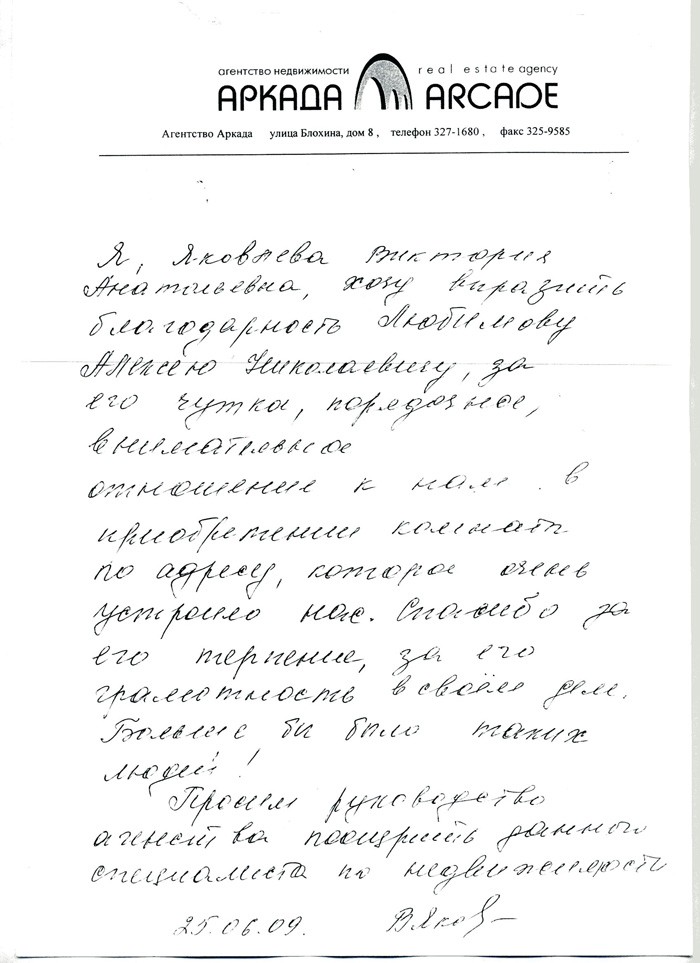 агентство недвижимости real estate agency
АРКАДА ARCADE
Агентство Аркада улица Блохина, дом 8 , телефон 327-1680 , факс 325-9585
Я, Яковлева Виктория
Анатольевна, хочу выразить
благодарность Любимову
Алексею Николаевичу, за
его чутка, порядочное,
внимательное
отношение к нам в
приобретении комнаты
по адресу, которое очень
устроило нас. Спасибо за
его терпение, за его
грамотность в своём деле.
Больше бы было таких
людей!
Просим руководство
агенства поощрить данного
специалиста по недвижимости
25.06.09.